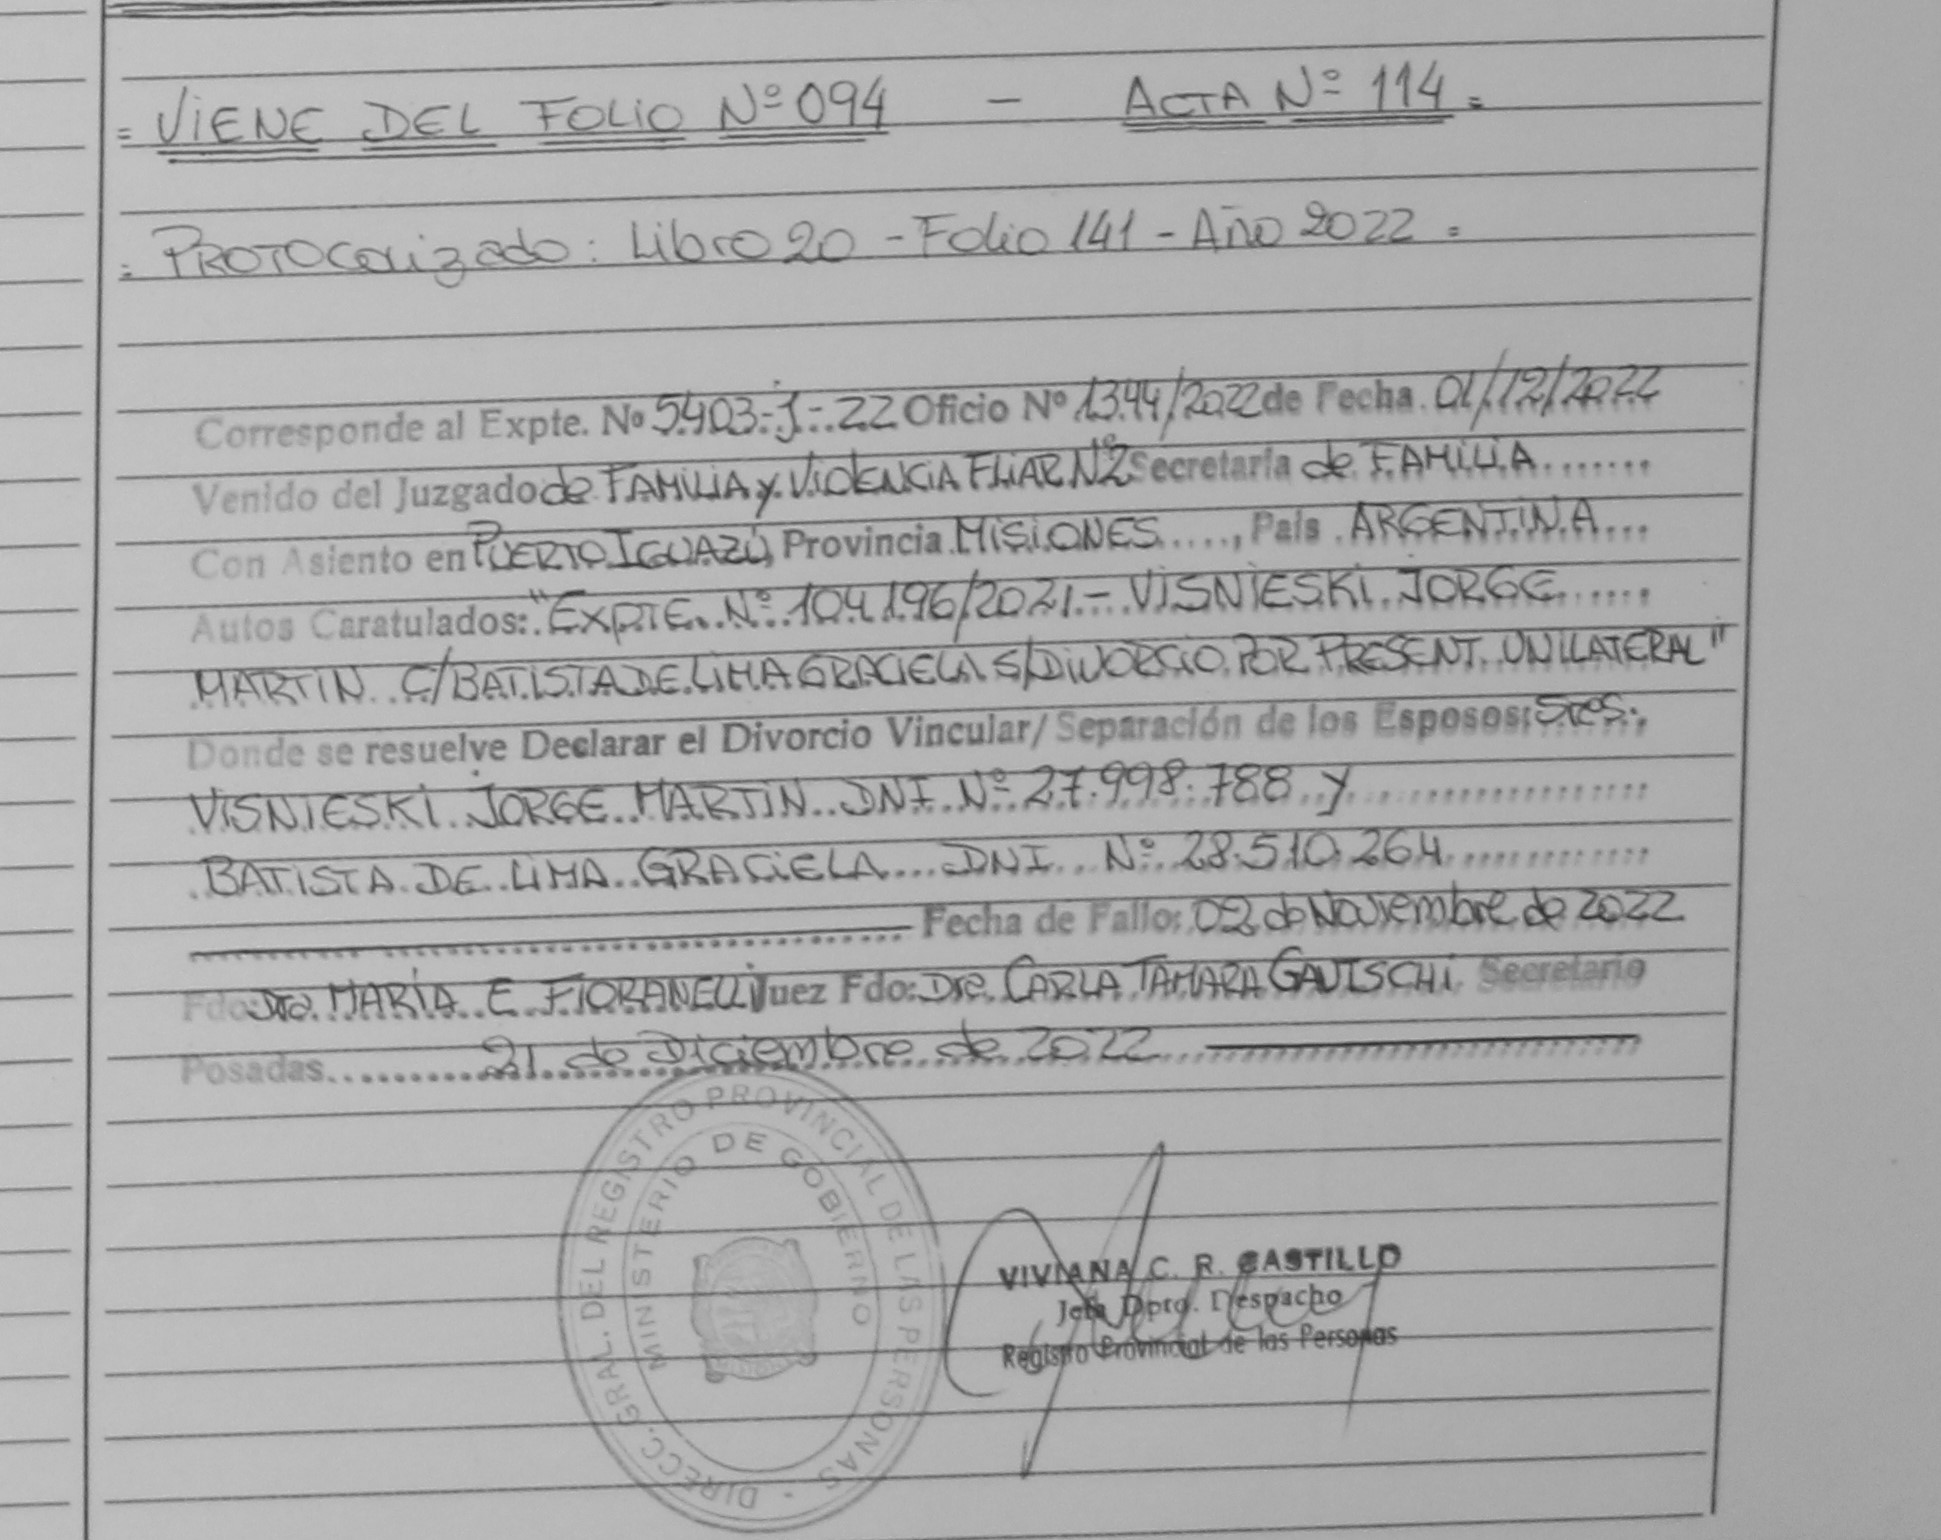 = VIENE DEL FOLIO Nº 094 - ACTA Nº 114 =
= PROTOCOLIZADO: Libro 20 - Folio 141 - Año 2022 =
Corresponde al Expte. Nº 5403-J-22 Oficio Nº 1344/2022 de Fecha 01/12/2022
Venido del Juzgado de FAMILIA y VIOLENCIA FLIAR Nº2 Secretaría de FAMILIA
Con Asiento en PUERTO IGUAZÚ, Provincia MISIONES, País ARGENTINA
Autos Caratulados: "EXPTE. Nº 104196/2021 - VISNIESKI JORGE
MARTIN C/BATISTA DE LIMA GRACIELA S/DIVORCIO POR PRESENT. UNILATERAL"
Donde se resuelve Declarar el Divorcio Vincular/Separación de los Esposos: Sres.
VISNIESKI JORGE MARTIN DNI Nº 27.998.788 y
BATISTA DE LIMA GRACIELA DNI Nº 28.510.264
Fecha de Fallo: 02 de Noviembre de 2022
Fdo: Dra. MARÍA E FIORANELLI Juez Fdo: Dra. CARLA TAMARA GAUTSCHI Secretario
Posadas 21 de Diciembre de 2022
DIRECC. GRAL. DEL REGISTRO PROVINCIAL DE LAS PERSONAS -
MINISTERIO DE GOBIERNO
VIVIANA C. R. CASTILLO
Jefa Dpto. Despacho
Registro Provincial de las Personas